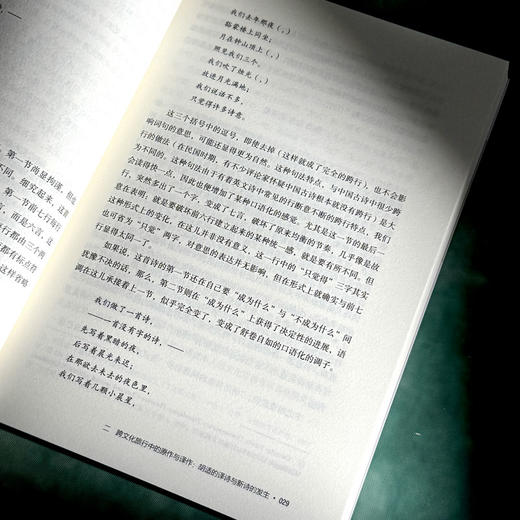 第一节尚显拘谨，
不同，细究起来，这
节。第一首前七行每行
，而是六言，
行都由三个两
都有标点符
这样省略
我们去年那夜（，）
豁蒙楼上同坐；
月在钟山顶上（，）
照见我们三个。
我们吹了烛光（，）
放进月光满地；
我们说话不多，
只觉得许多诗意。
这三个括号中的逗号，即使去掉（这样就成了完全的跨行），也不会影
响词句的意思，可能还显得更为自然。这种句法特点，与中国古诗中很少跨
行的做法（在民国时期，有不少评论家怀疑中国古诗根本就没有跨行）是大
为不同的。这种句法由于有着英文诗中常见的行断意不断的跨行特点，我们
会读得快一点，因此也便增加了某种口语化的感觉。尤其是这一节的最后一
行，突然多出了一个字，变成了七言，破坏了原来均衡的节奏，几乎像是故
意在表明，就是要破坏前六行建立起来的某种统一感，就是要有所不同。但
这种形式上的变化，在这儿并非没有意义。这一行中的“只觉得”三字其实
也可省为“只觉”两字，对意思的表达并无影响，但在形式上就确实与前七
行显得太同一了。
如果说，这首诗的第一节还在自己要“成为什么”与“不成为什么”间
犹豫不决的话，那么，第二节则在“成为什么”上获得了决定性的进展，语
调在这儿承接着上一节，似乎完全变了，变成了舒卷自如的口语化的调子。
我们做了一首诗，
——一首没有字的诗，——
先写着黑暗的夜，
后写着晨光来迟；
在那欲去未去的夜色里，
我们写着几颗小晨星，
二 跨文化旅行中的原作与译作：胡适的译诗与新诗的发生 · 029